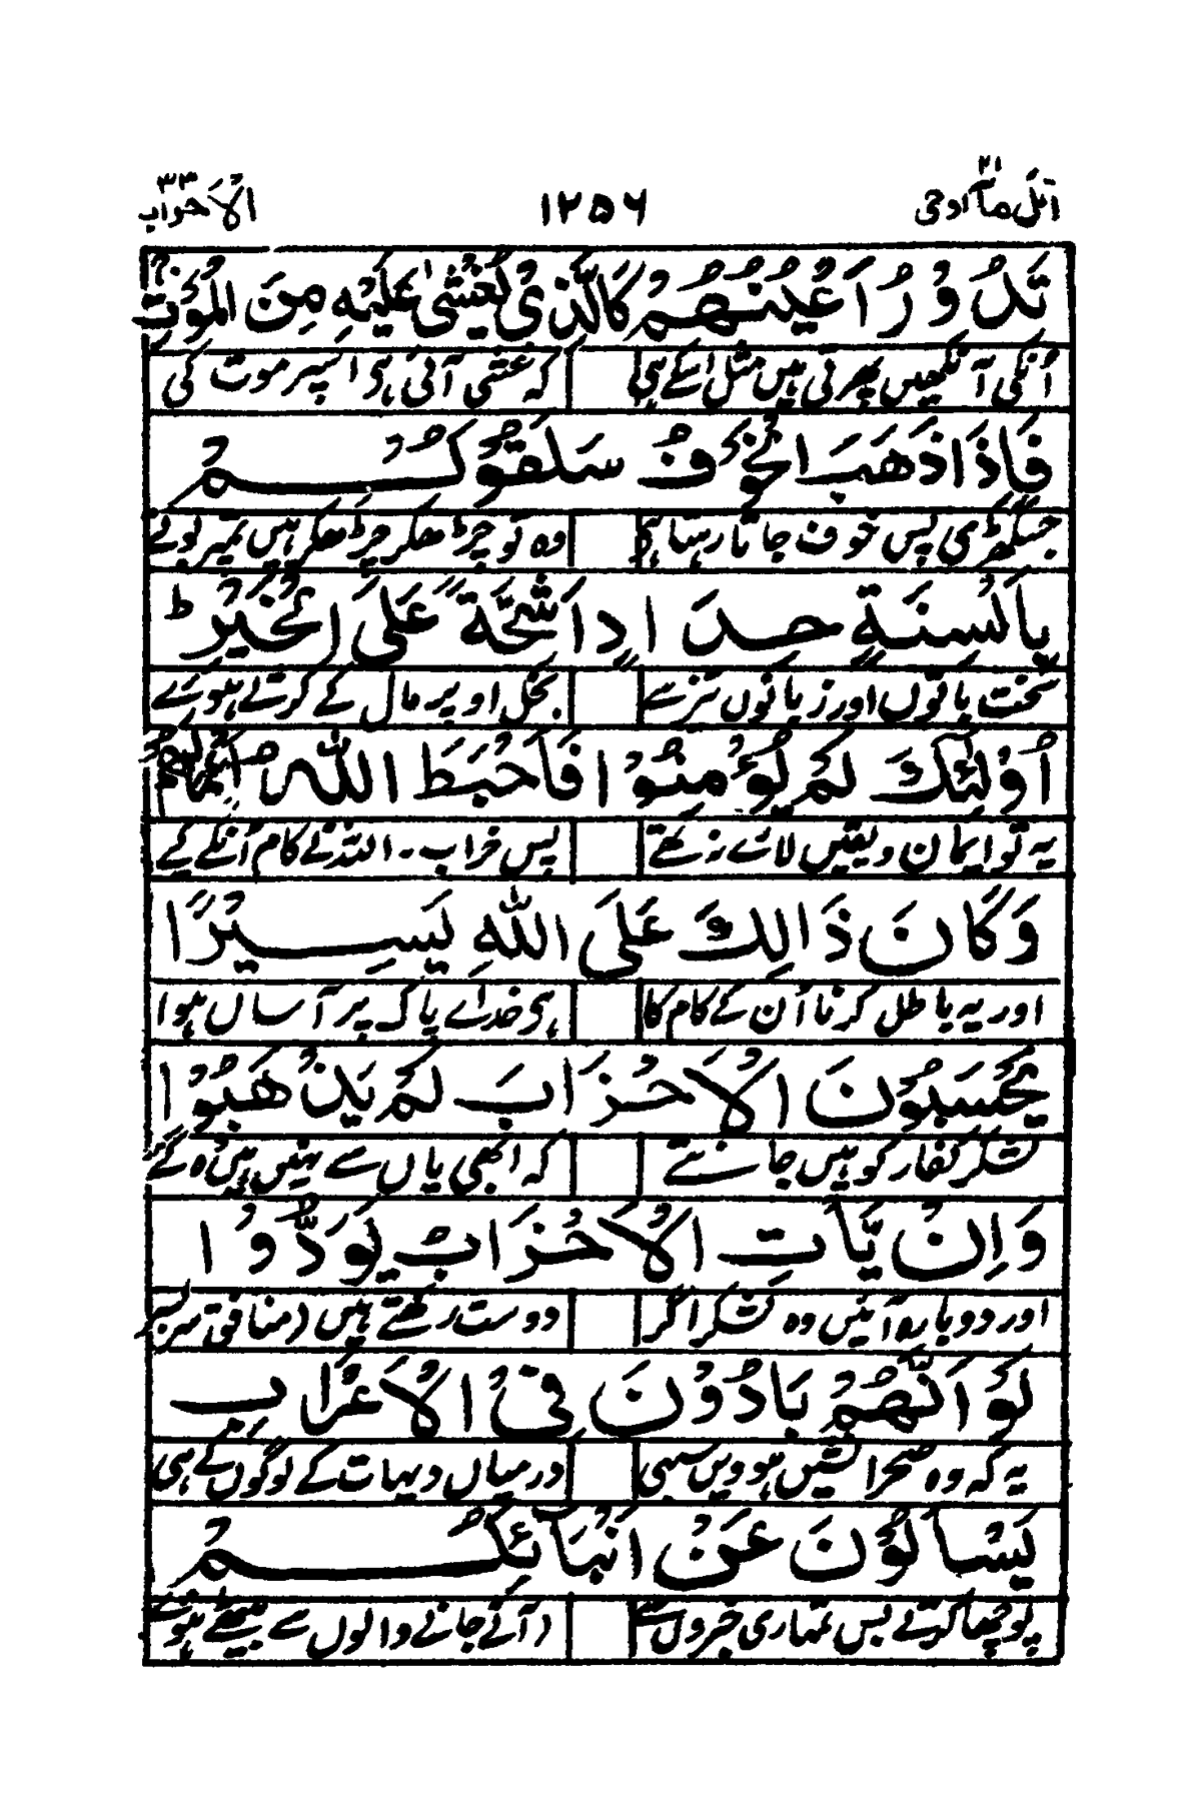 اتل مآ اوحی ۲۱ ۱۲۵۶ الاحزاب ۳۳
تَدُوْرُ اَعْیُنُهُمْ كَالَّذِیْ یُغْشٰی عَلَیْهِ مِنَ الْمَوْتِ
اُنکی آنکھیں پھرتی ہیں مثل اسکے ہی کہ غشی آئی ہو اسپر موت کی
فَاِذَا ذَهَبَ الْخَوْفُ سَلَقُوْكُمْ
جسگھڑی پس خوف جاتا رہتا ہی وہ تو چڑھکر چڑھکر ہیں تمپر بولتے
بِاَلْسِنَةٍ حِدَادٍ اَشِحَّةً عَلَی الْخَیْرِ ط
سخت باتوں اور زبانوں تیز سے بخل اوپر مال کے کرتے ہوے
اُوْلٰٓئِكَ لَمْ یُؤْمِنُوْا فَاَحْبَطَ اللّٰهُ اَعْمَالَهُمْ
یہ تو ایمان و یقیں لائے نہ تھے پس خراب - اللہ نے کام اُنکے کیے
وَكَانَ ذَالِكَ عَلَی اللّٰهِ یَسِیْرًا
اور یہ باطل کرنا اُن کے کام کا ہی خداے پاک پر آساں ہوا
یَحْسَبُوْنَ الْاَحْزَابَ لَمْ یَذْهَبُوْا
لشکر کفار کو ہیں جانتے کہ ابھی یاں سے نہیں ہیں وہ گئے
وَاِنْ یَّاْتِ الْاَحْزَابُ یَوَدُّوْا
اور دوبارہ آئیں وہ لشکر اگر دوست رکھتے ہیں (منافق سر بسر
لَوْ اَنَّهُمْ بَادُوْنَ فِی الْاَعْرَابِ
یہ کہ وہ صحرا نشیں ہوویں سبھی درمیاں دیہات کے لوگوں کے ہی
یَسْاَلُوْنَ عَنْ اَنْبَآئِكُمْ
پوچھا کرتے بس تمہاری خبروں سے (آنے جانے والوں سے بیٹھے ہوے